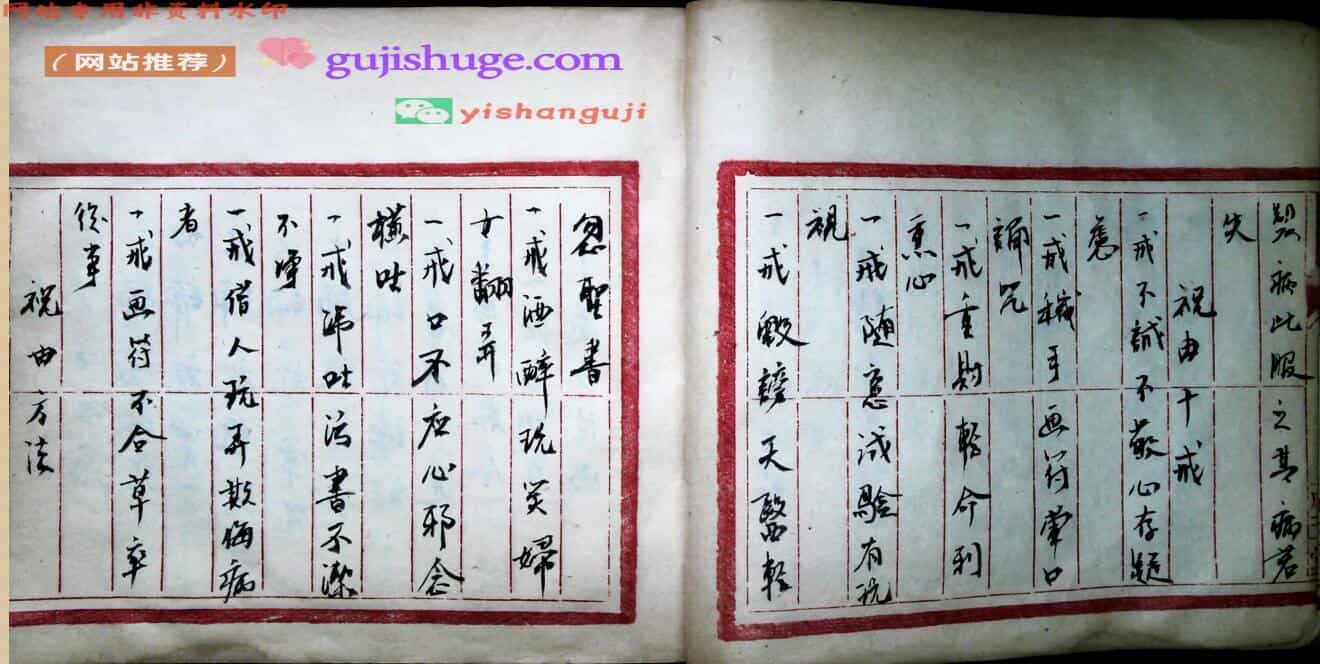 网站专用非资料水印
（网站推荐）
gujishuge.com
yishanguji
病此服之其病若
失
祝由十戒
一戒不誠不敬心存疑
慮
一戒穢手画符葷口
誦咒
一戒重財輕命利
熏心
一戒随意试驗有玩
視
一戒毀謗天醫輕
忽聖書
一戒酒醉玩笑婦
女翻弄
一戒口不应心邪念
横吐
一戒涕吐污書不潔
不净
一戒借人玩弄欺侮病
者
一戒画符不合草率
從事
祝由方法